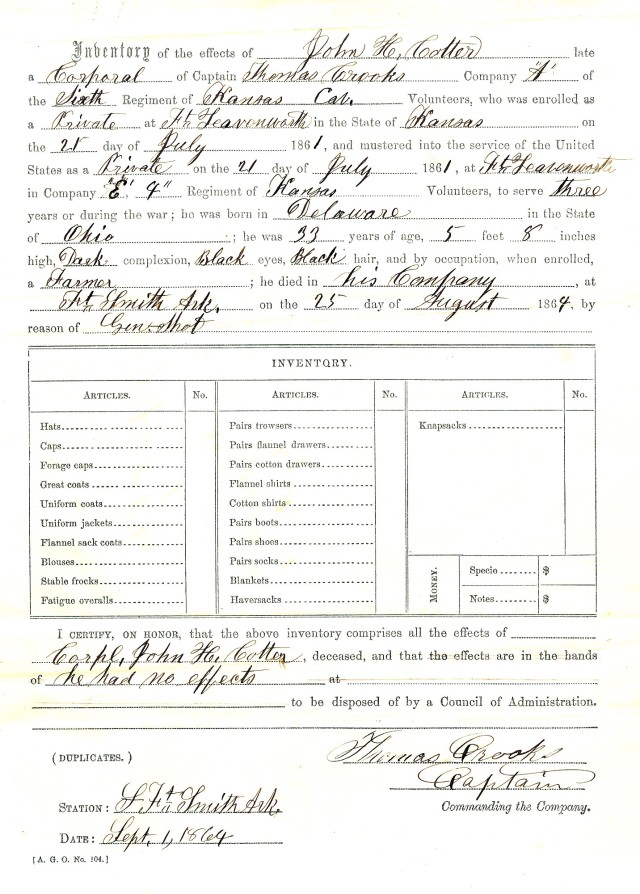 Inventory of the effects of John H. Cotter late
a Corporal of Captain Thomas Crooks Company "A" of
the Sixth Regiment of Kansas Cav. Volunteers, who was enrolled as
a Private at Ft. Leavenworth in the State of Kansas on
the 21 day of July 1861, and mustered into the service of the United
States as a Private on the 21 day of July 1861, at Ft. Leavenworth
in Company "E" 4" Regiment of Kansas Volunteers, to serve three
years or during the war; he was born in Delaware in the State
of Ohio; he was 33 years of age, 5 feet 8 inches
high, Dark complexion, Black eyes, Black hair, and by occupation, when enrolled,
a Farmer; he died in his Company, at
Ft. Smith Ark. on the 25 day of August 1864, by
reason of Gun-shot
INVENTORY.
ARTICLES. No. ARTICLES. No. ARTICLES. No.
Hats Pairs trowsers Knapsacks
Caps Pairs flannel drawers
Forage caps Pairs cotton drawers
Great coats Flannel shirts
Uniform coats Cotton shirts
Uniform jackets Pairs boots
Flannel sack coats Pairs shoes
Blouses Pairs socks MONEY. Specie $
Stable frocks Blankets
Fatigue overalls Haversacks Notes $
I CERTIFY, ON HONOR, that the above inventory comprises all the effects of
Corpl. John H. Cotter, deceased, and that the effects are in the hands
of he had no effects at
to be disposed of by a Council of Administration.
(DUPLICATES.) Thomas Crooks
Captain
STATION: Ft. Smith Ark. Commanding the Company.
DATE: Sept. 1, 1864
[A. G. O. No. 104.]